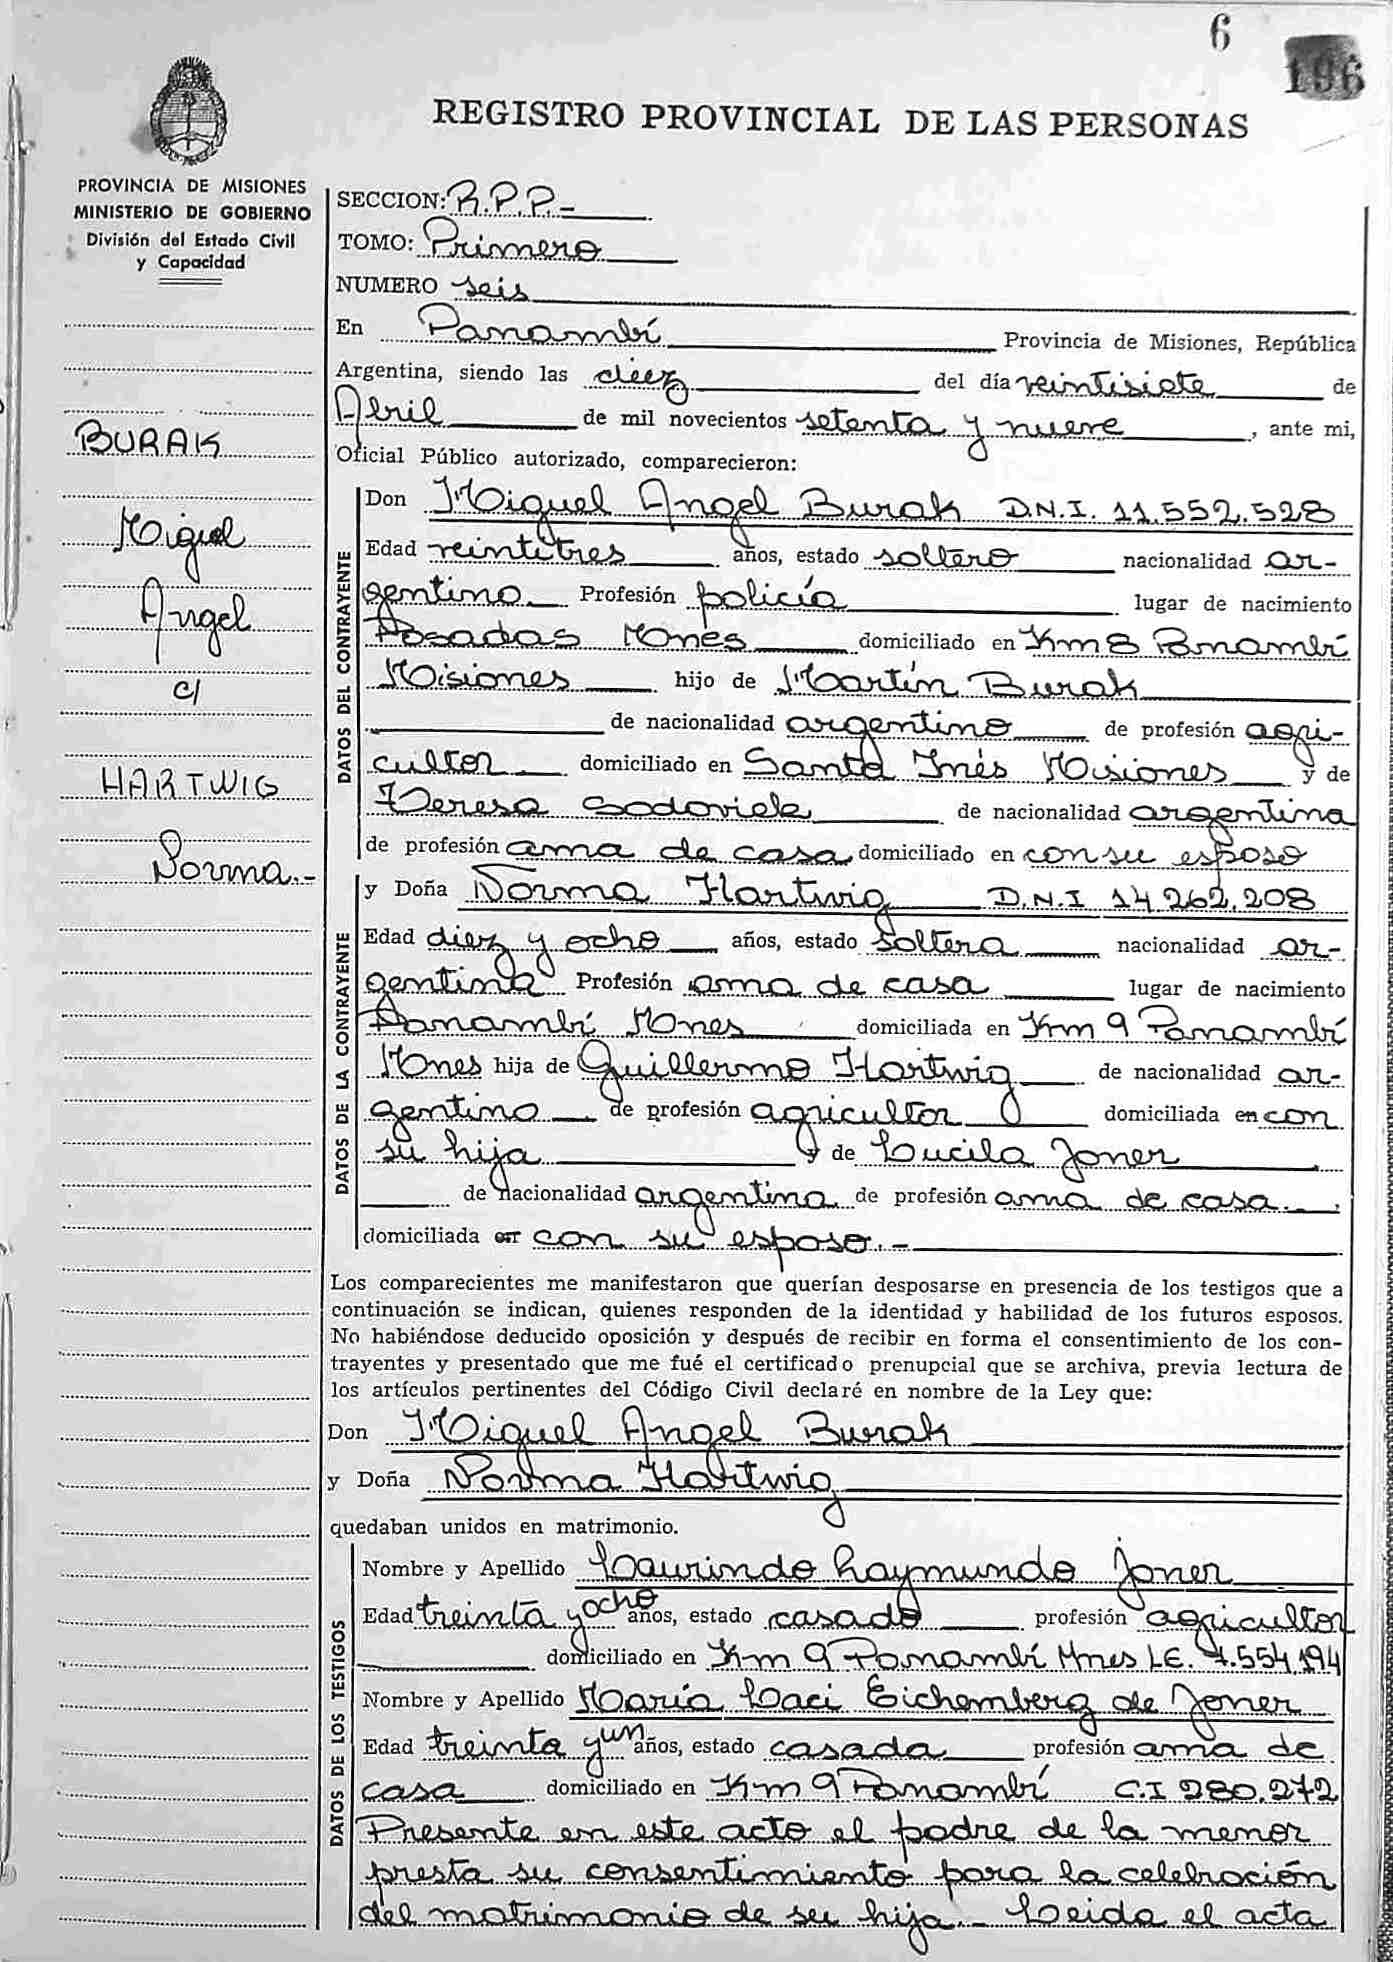 6
196
REGISTRO PROVINCIAL DE LAS PERSONAS
PROVINCIA DE MISIONES
MINISTERIO DE GOBIERNO
División del Estado Civil
y Capacidad
BURAK
Miguel
Angel
c/
HARTWIG
Norma.-
SECCION: R.P.P.-
TOMO: Primero
NUMERO seis
En Panambí Provincia de Misiones, República
Argentina, siendo las diez del día veintisiete de
Abril de mil novecientos setenta y nueve, ante mi,
Oficial Público autorizado, comparecieron:
DATOS DEL CONTRAYENTE
Don Miguel Angel Burak D.N.I. 11.552.528
Edad veintitres años, estado soltero nacionalidad ar-
gentino Profesión policía lugar de nacimiento
Posadas Mnes domiciliado en Km 8 Panambí
Misiones hijo de Martín Burak
de nacionalidad argentino de profesión agri-
cultor domiciliado en Santa Inés Misiones y de
Teresa de nacionalidad argentina
de profesión ama de casa domiciliado en con su esposo
DATOS DE LA CONTRAYENTE
y Doña Norma Hartwig D.N.I 14.262.208
Edad diez y ocho años, estado soltera nacionalidad ar-
gentina Profesión ama de casa lugar de nacimiento
Panambí Mnes domiciliada en Km 9 Panambí
Mnes hija de Guillermo Hartwig de nacionalidad ar-
gentino de profesión agricultor domiciliada en con
su hija y de Lucila Joner
de nacionalidad argentina de profesión ama de casa.
domiciliada en con su esposo.-
Los comparecientes me manifestaron que querían desposarse en presencia de los testigos que a
continuación se indican, quienes responden de la identidad y habilidad de los futuros esposos.
No habiéndose deducido oposición y después de recibir en forma el consentimiento de los con-
trayentes y presentado que me fué el certificado prenupcial que se archiva, previa lectura de
los artículos pertinentes del Código Civil declaré en nombre de la Ley que:
Don Miguel Angel Burak
y Doña Norma Hartwig
quedaban unidos en matrimonio.
DATOS DE LOS TESTIGOS
Nombre y Apellido Laurindo Raymundo Joner
Edad treinta y ocho años, estado casado profesión agricultor
domiciliado en Km 9 Panambí Mnes L.E. 7.554.194
Nombre y Apellido María Laci Eichemberg de Joner
Edad treinta y un años, estado casada profesión ama de
casa domiciliado en Km 9 Panambí C.I 280.272
Presente en este acto el padre de la menor
presta su consentimiento para la celebración
del matrimonio de su hija.- Leida el acta